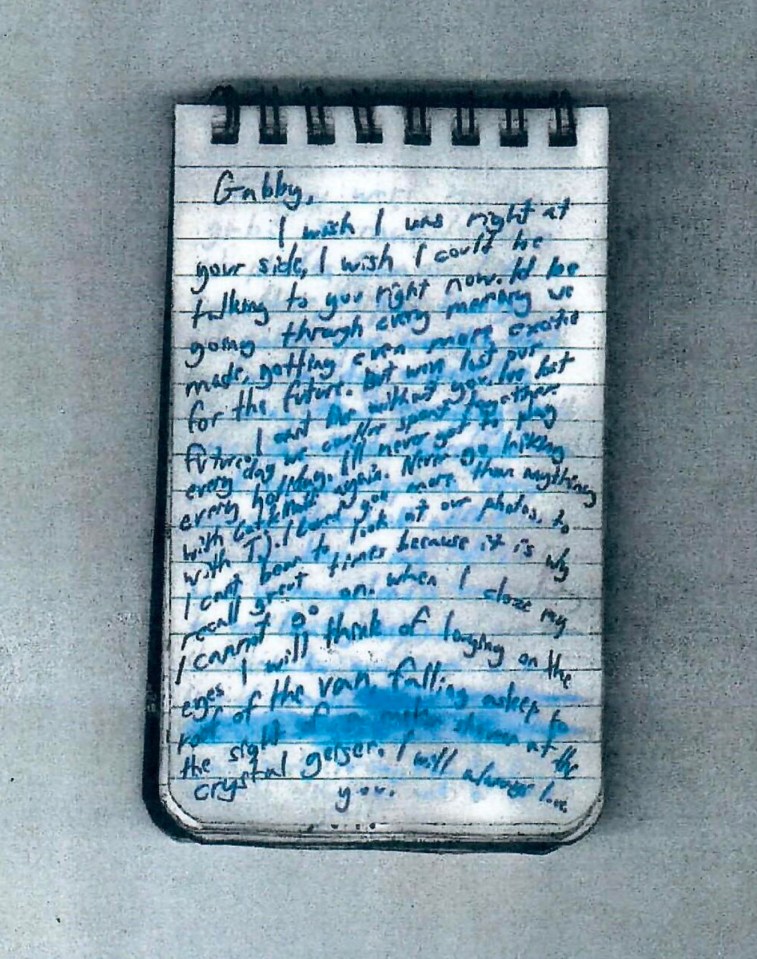 Gabby,
I wish I was right at
your side, I wish I could be
talking to you right now. Id be
going through every memory we
made, getting even more excited
for the future. But won lost our
future. I cant live without you. Ive lost
every day we could've spent together.
every holiday. I'll never get to play
with again. Never go hiking
with TJ. I loved you more than anything
I cant bear to look at our photos, to
recall great times because it is why
I cannot go on. when I close my
eyes I will think of laughing on the
roof of the van, falling asleep to
the sight of a meteor shower at the
crystal geiser. I will always love
you.